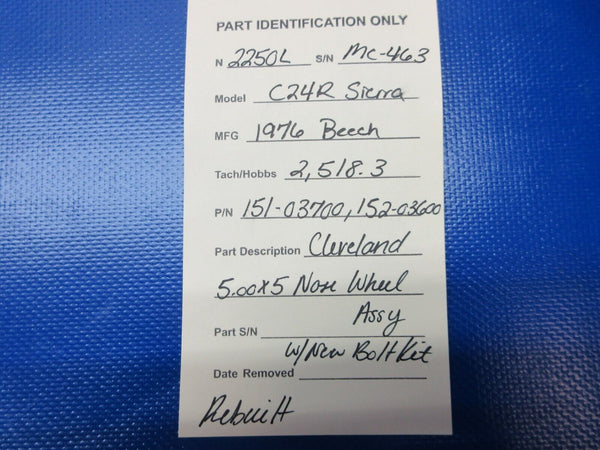 PART IDENTIFICATION ONLY
N 2250L S/N MC-463
Model C24R Sierra
MFG 1976 Beech
Tach/Hobbs 2,518.3
P/N 151-03700, 152-03600
Part Description Cleveland
5.00x5 Nose Wheel
Assy
Part S/N
w/New Bolt Kit
Date Removed
Rebuilt